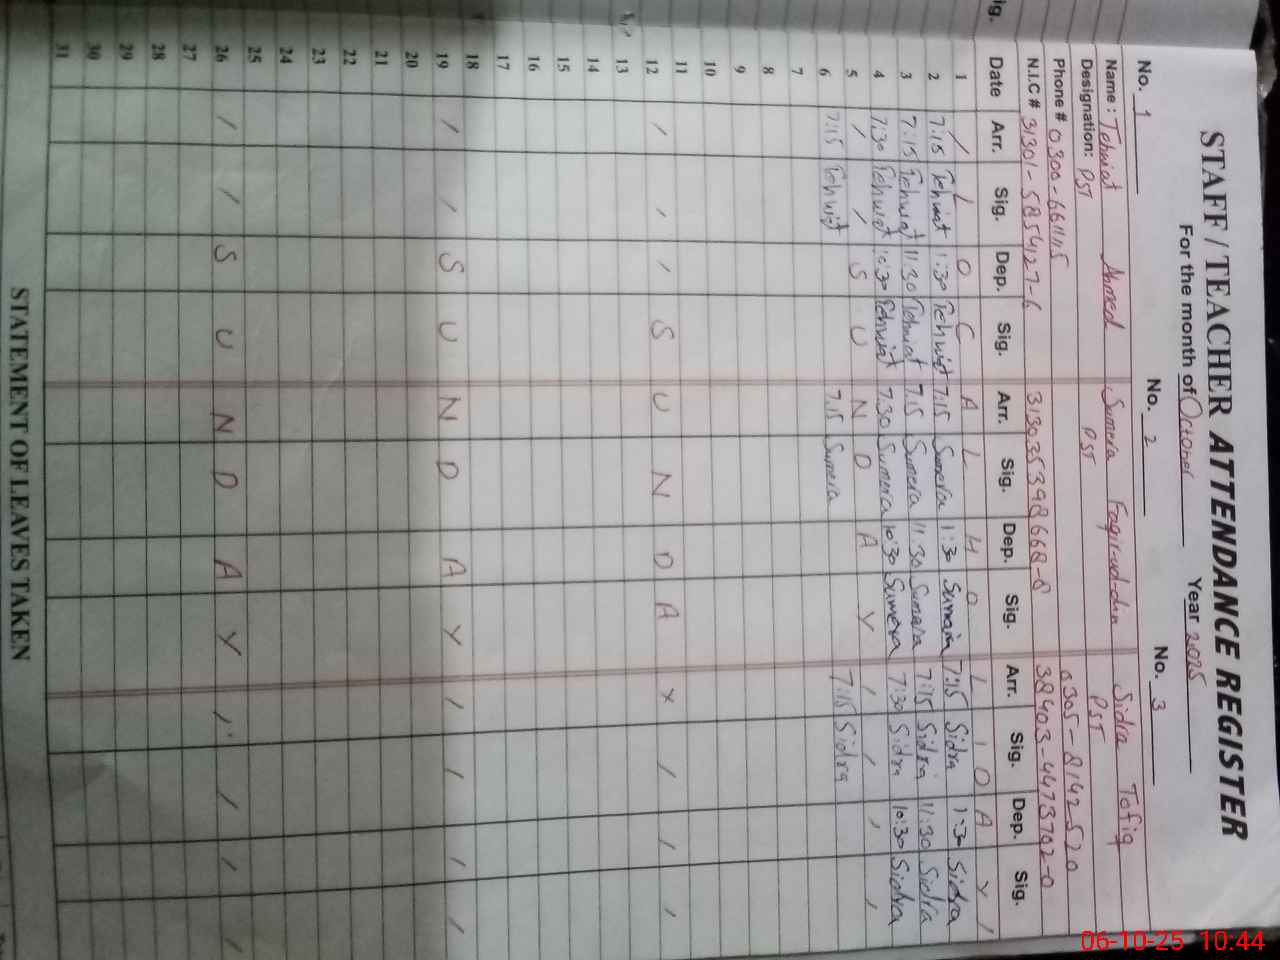 STAFF / TEACHER ATTENDANCE REGISTER
For the month of Ocioner Year 2025
No. 1 No. 2 No. 3
Name : Tehwiat Ahmed Sumera Faqir-ud-din Sidra Tofiq
Designation: PST PST PST
Phone # 0300-6611115 0305-8142520
N.I.C # 31301-5854127-6 3130353986668-8 38403-4473702-0
ig. Date Arr. Sig. Dep. Sig. Arr. Sig. Dep. Sig. Arr. Sig. Dep. Sig.
1 / L O C A L H O L I D A Y /
2 7:15 Tehwiat 1:30 Tehwiat 7:15 Sumera 1:30 Sumera 7:15 Sidra 1:30 Sidra
3 7:15 Tehwiat 11:30 Tehwiat 7.15 Sumera 11:30 Sumera 7:15 Sidra 11:30 Sidra
4 7:30 Tehwiat 10:30 Tehwiat 7.30 Sumera 10:30 Sumera 7:30 Sidra 10:30 Sidra
5 / / S U N D A Y / / / /
6 7:15 Tehwiat 7.15 Sumera 7:15 Sidra
7
8
9
10
11
12 / / / S U N D A Y / / /
13
14
15
16
17
18
19 / / S U N D A Y / / / /
20
21
22
23
24
25
26 / / S U N D A Y / / / /
27
28
29
30
31
STATEMENT OF LEAVES TAKEN
06-10-25 10:44